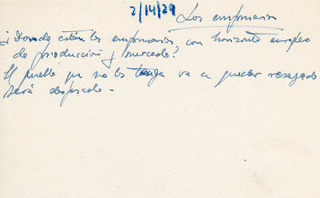 2/14/29
Los empresarios
¿Donde están los empresarios, con horizonte europeo
de producción y mercado?
El pueblo que no los tenga va a quedar rezagado
será desplazado -